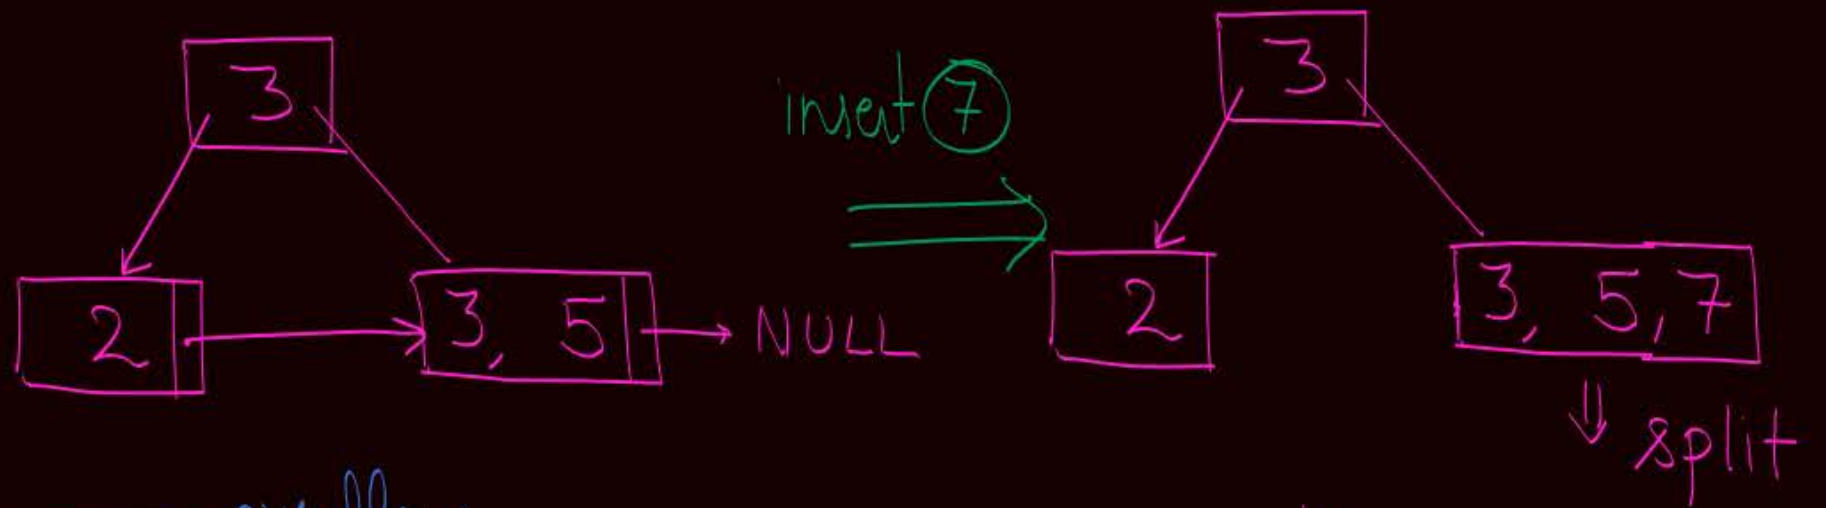 3
2
3, 5
NULL
insert 7
3
2
3, 5, 7
split